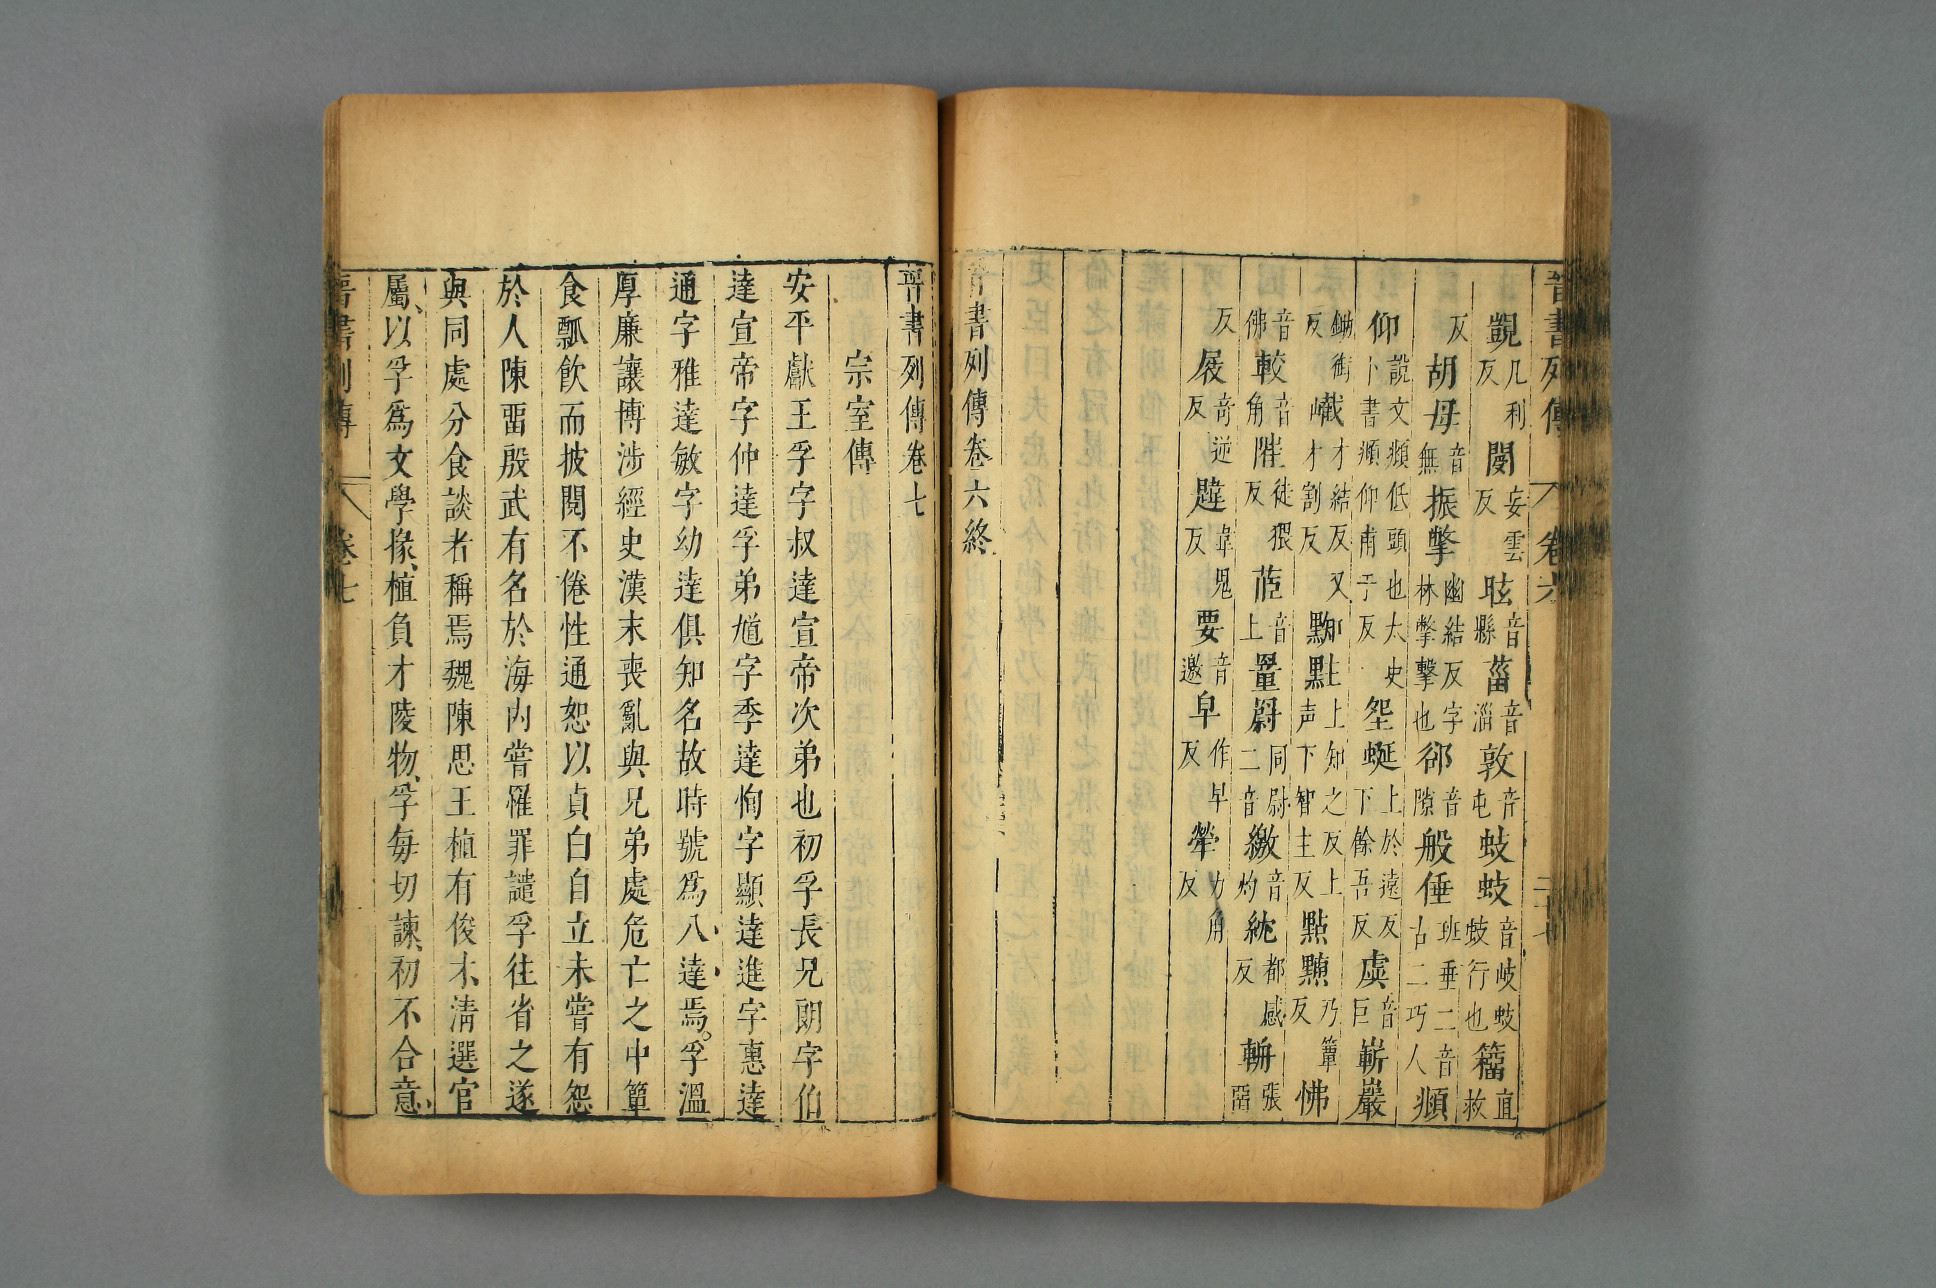 晉書列傳 卷六 二十七
覬几利反 閿妄雲反 昡音縣 菑音淄 敦音屯 蚑蚑音岐蚑蚑行也 籀直救
反 胡毋音無 振撆幽結反字林撆擊也 郤音隙 般倕班垂二音古二巧人 頫
仰說文頫低頭也太史卜書頫仰甫于反 蛵蜒上於遠反下餘吾反 虡音巨 嶄巖
鋤銜反 嶻才結反又才割反 點上声下智主反 點 乃簟反 怫
音佛 較音角 陮徒猥反 蓲音上 罿罻同尉二音 繳音灼 紞都感反 輈張畱
反 屐奇逆反 韙韋鬼反 要音邀 早作早反 犖力角反
晉書列傳卷六終
晉書列傳卷七
宗室傳
安平獻王孚字叔達宣帝次弟也初孚長兄朗字伯
達宣帝字仲達孚弟馗字季達恂字顯達進字惠達
通字雅達敏字幼達俱知名故時號爲八達焉孚溫
厚廉讓博涉經史漢末喪亂與兄弟處危亡之中簞
食瓢飲而披閱不倦性通恕以貞白自立未嘗有怨
於人陳畱殷武有名於海內嘗罹罪譴孚往省之遂
與同處分食談者稱焉魏陳思王植有俊才清選官
屬以孚爲文學掾植負才陵物孚每切諫初不合意
晉書列傳 卷七